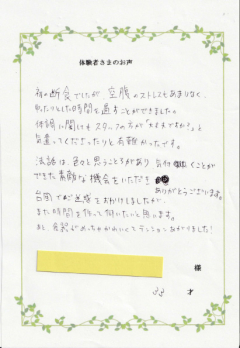 体験者さまのお声
初の断食でしたが、空腹のストレスもあまりなく、
ゆったりとした時間を過すことができました。
体調に関しても スタッフの方が「大丈夫ですか?」と
気遣ってくださったりと 有難かったです。
法話は、色々と思うところがあり 気付くことが
できた素敵な機会をいただき
ありがとうございます。
台風でご迷惑をおかけしましたが、
また時間を作って伺いたいと思います。
めっちゃかわいくて
様
32 才